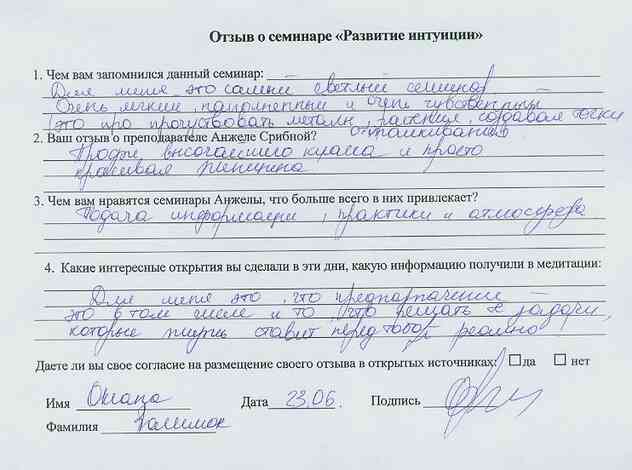 Отзыв о семинаре «Развитие интуиции»
1. Чем вам запомнился данный семинар:
Для меня это самый светлый семинар.
Очень легкий, наполненный и очень чувственный
(это про прочувствовать металы, растение, создавая точки
2. Ваш отзыв о преподавателе Анжеле Срибной?
Профи высочайшего класса и просто
красивая женщина
3. Чем вам нравятся семинары Анжелы, что больше всего в них привлекает?
Подача информации, практики и атмосфера
4. Какие интересные открытия вы сделали в эти дни, какую информацию получили в медитации:
Для меня это, что предназначение –
это в том числе и то, что решать те задачи,
которые жизнь ставит перед тобой реально
Даете ли вы свое согласие на размещение своего отзыва в открытых источниках: да нет
Имя Оксана Дата 23.06. Подпись
Фамилия Галимок